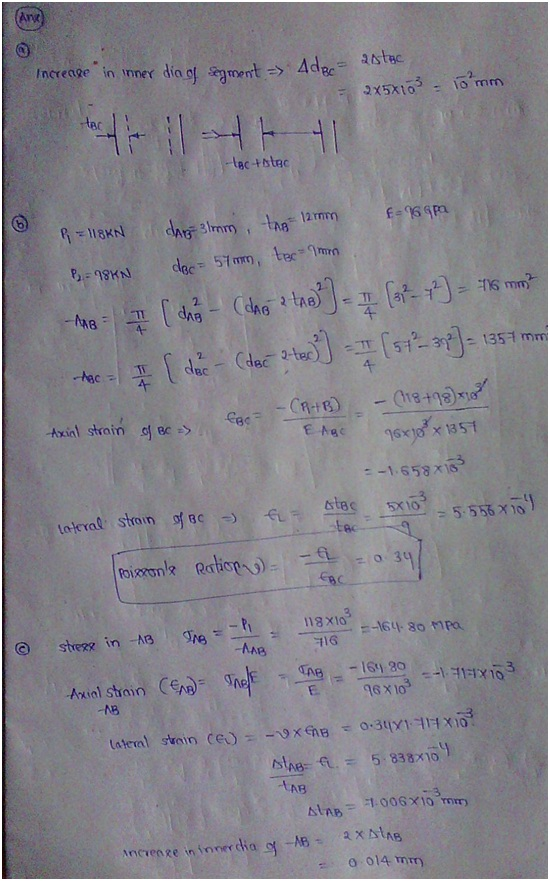 Ans
(a)
Increase in inner dia of segment => Δd_BC = 2Δt_BC
= 2×5×10^-3 = 10^-2 mm
t_BC
=>
t_BC + Δt_BC
(b)
P1 = 118KN d_AB = 31mm, t_AB = 12mm E = 96 GPa
P2 = 98KN d_BC = 57mm, t_BC = 9mm
A_AB = π/4 [d_AB^2 - (d_AB - 2t_AB)^2] = π/4 [31^2 - 7^2] = 716 mm^2
A_BC = π/4 [d_BC^2 - (d_BC - 2t_BC)^2] = π/4 [57^2 - 39^2] = 1357 mm
Axial strain of BC => ε_BC = -(P1+P2)/(E A_BC) = -(118+98)×10^3/(96×10^3×1357)
= -1.658×10^-3
Lateral strain of BC => ε_L = Δt_BC/t_BC = 5×10^-3/9 = 5.556×10^-4
Poisson's Ratio(ν) = -ε_L/ε_BC = 0.34
(c) stress in AB σ_AB = -P1/A_AB = 118×10^3/716 = -164.80 MPa
Axial strain (ε_AB) = σ_AB/E = σ_AB/E = -164.80/96×10^3 = -1.717×10^-3
AB
Lateral strain (ε_L) = -ν×ε_AB = 0.34×1.717×10^-3
Δt_AB/t_AB = ε_L = 5.838×10^-4
Δt_AB = 7.006×10^-3 mm
Increase in inner dia of AB = 2×Δt_AB
= 0.014 mm